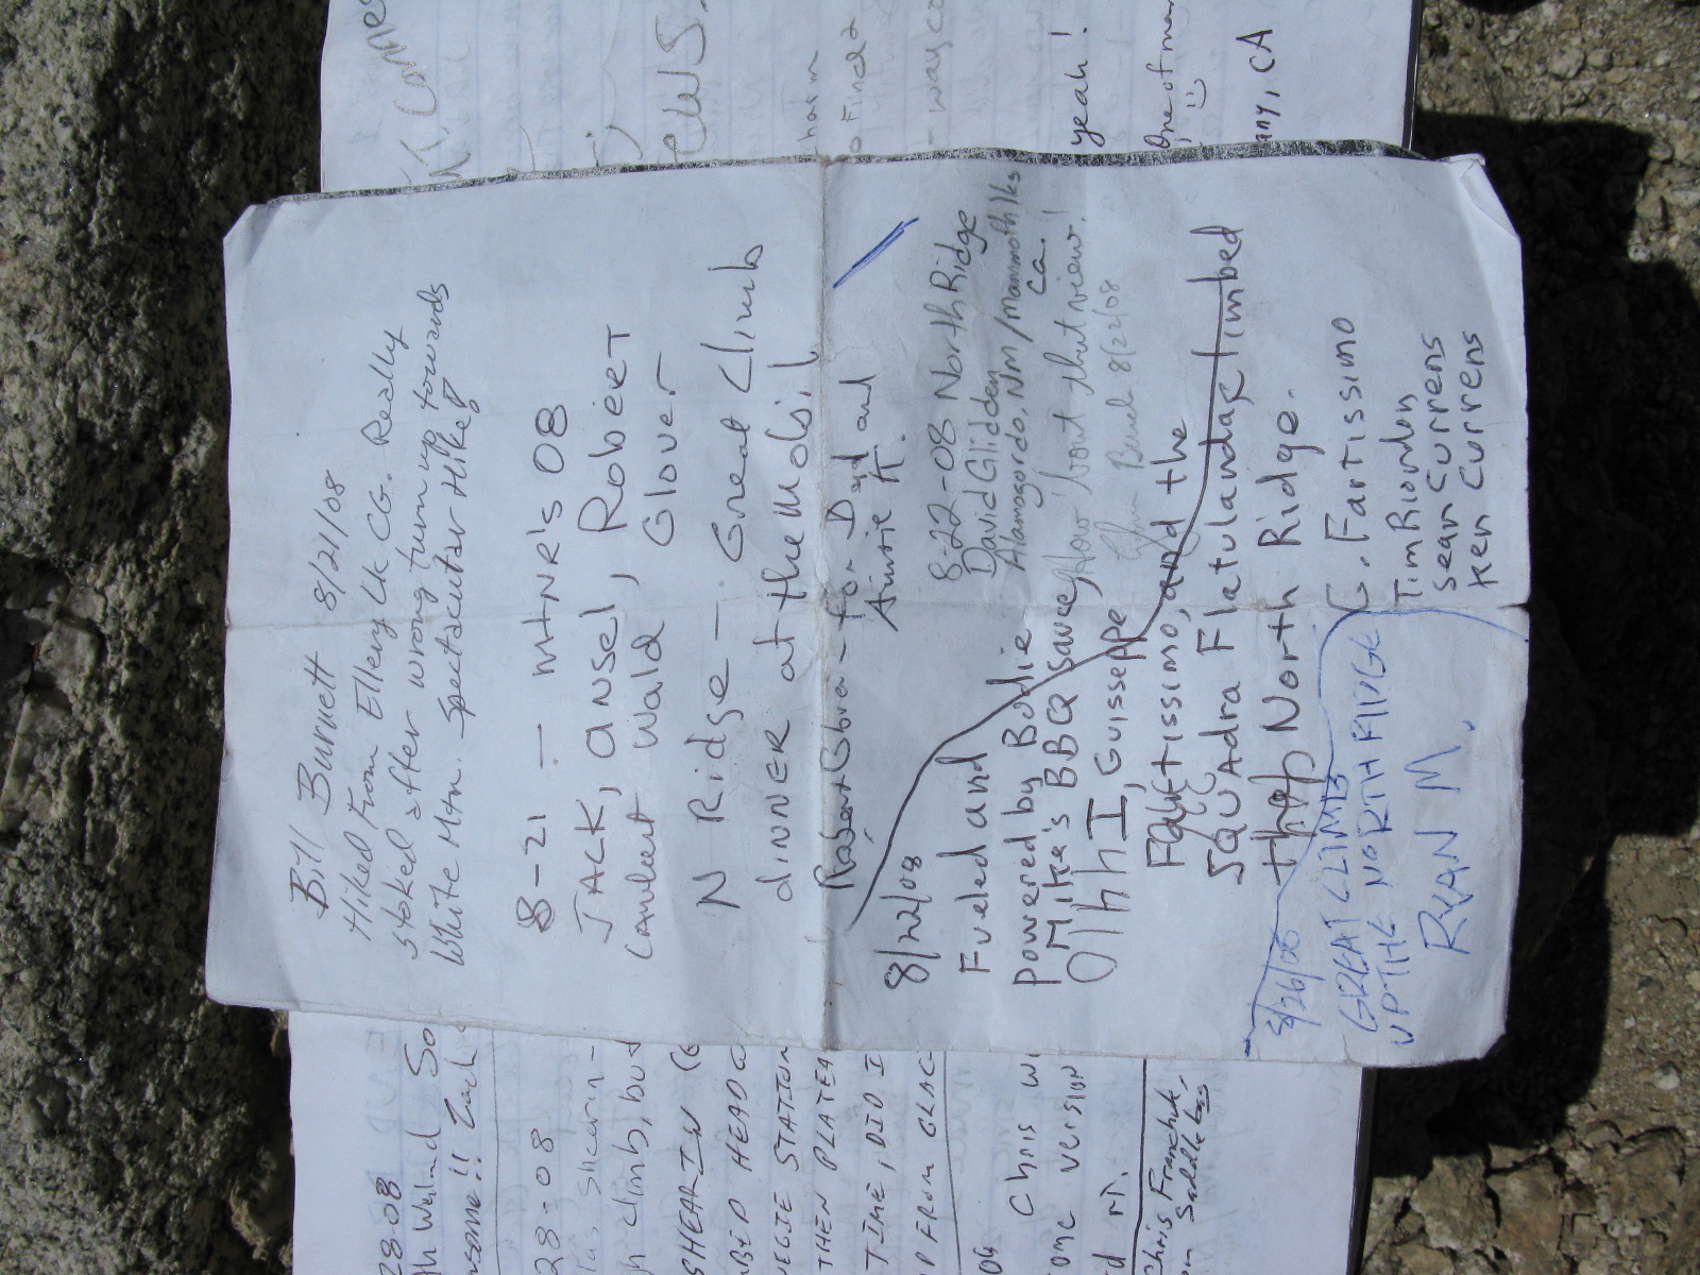 Bill Burnett 8/21/08
Hiked from Ellery Lk CG. Really
stoked after wrong turn up towards
White Mtn. Spectacular Hike!
8-21 — MTNR'S 08
JACK, ANSEL, ROBERT
Lambert Wald, Glover
N Ridge — Great Climb
dINNER at the Mobil
Robert Cobra - for Dad and
Annie K.
8-22-08 North Ridge
David Glidden
Alamogordo, NM/Mammoth lks
Ca.
How 'bout that view!
8/22/08
8/22/08
Fueled and
powered by Bodie
Mike's BBQ sauce,
Ohh I, Guisseppe
Fartissimo, and the
SQUAdra Flatulanda climbed
the North Ridge.
G. Fartissimo
Tim Riordan
Sean Currens
Ken Currens
8/26/08
GREAT CLIMB
UP THE NORTH RIDGE
RYAN M.
yeah!
One of many
any, CA
way co
o Find a
28-08
So
28-08
h climb, but
SHEARIN
HEAD
STATION
THEN PLATEA
TIME, DID I
FROM GLAC
Chris W
ome version
Chris Franchuk
Saddlebag